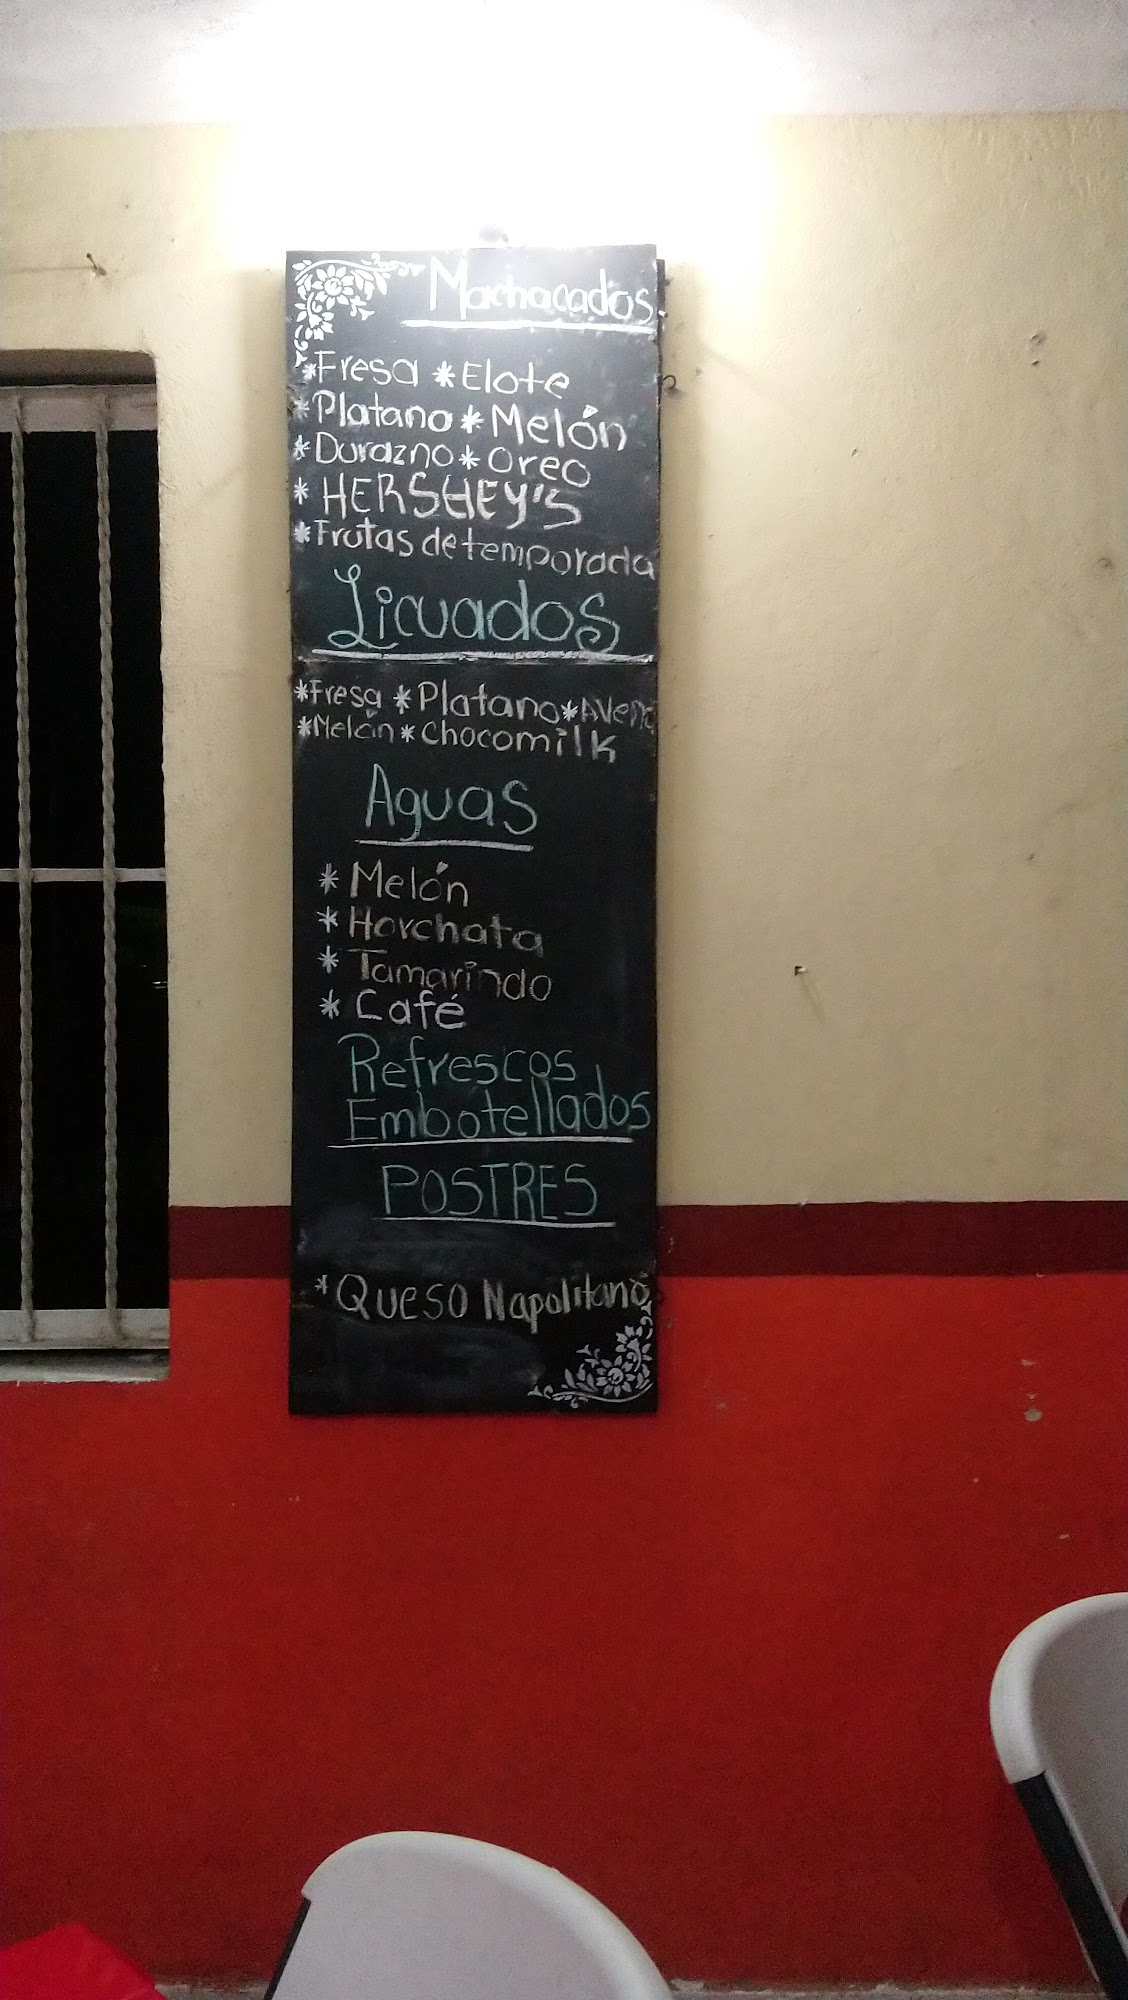 Machacados
*Fresa *Elote
*Platano *Melón
*Durazno *Oreo
*HERSHEY'S
*Frutas de temporada
Licuados
*Fresa *Platano *Avena
*Melón *Chocomilk
Aguas
*Melón
*Horchata
*Tamarindo
*Café
Refrescos
Embotellados
POSTRES
*Queso Napolitano